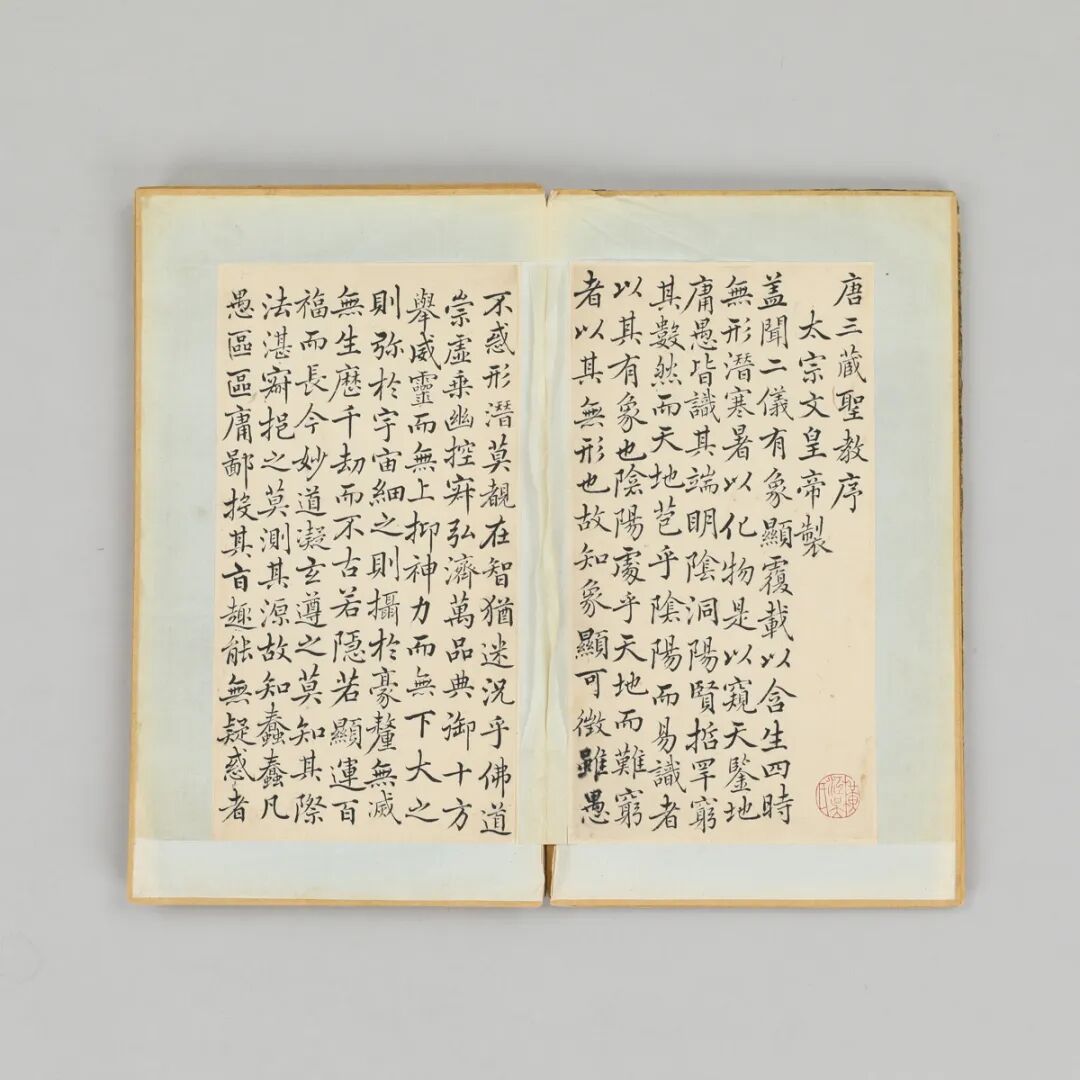 唐三蔵聖教序
太宗文皇帝製
盖聞二儀有象顯覆載以含生四時
無形潛寒暑以化物是以窺天鑒地
庸愚皆識其端明陰洞陽賢哲罕窮
其數然而天地苞乎陰陽而易識者
以其有象也陰陽處乎天地而難窮
者以其無形也故知象顯可徵雖愚
不惑形潛莫覩在智猶迷況乎佛道
崇虛乘幽控寂弘濟萬品典御十方
舉威靈而無上抑神力而無下大之
則弥於宇宙細之則攝於豪釐無滅
無生歷千劫而不古若隱若顯運百
福而長今妙道凝玄遵之莫知其際
法湛寂挹之莫測其源故知蠢蠢凡
愚區區庸鄙投其旨趣能無疑惑者